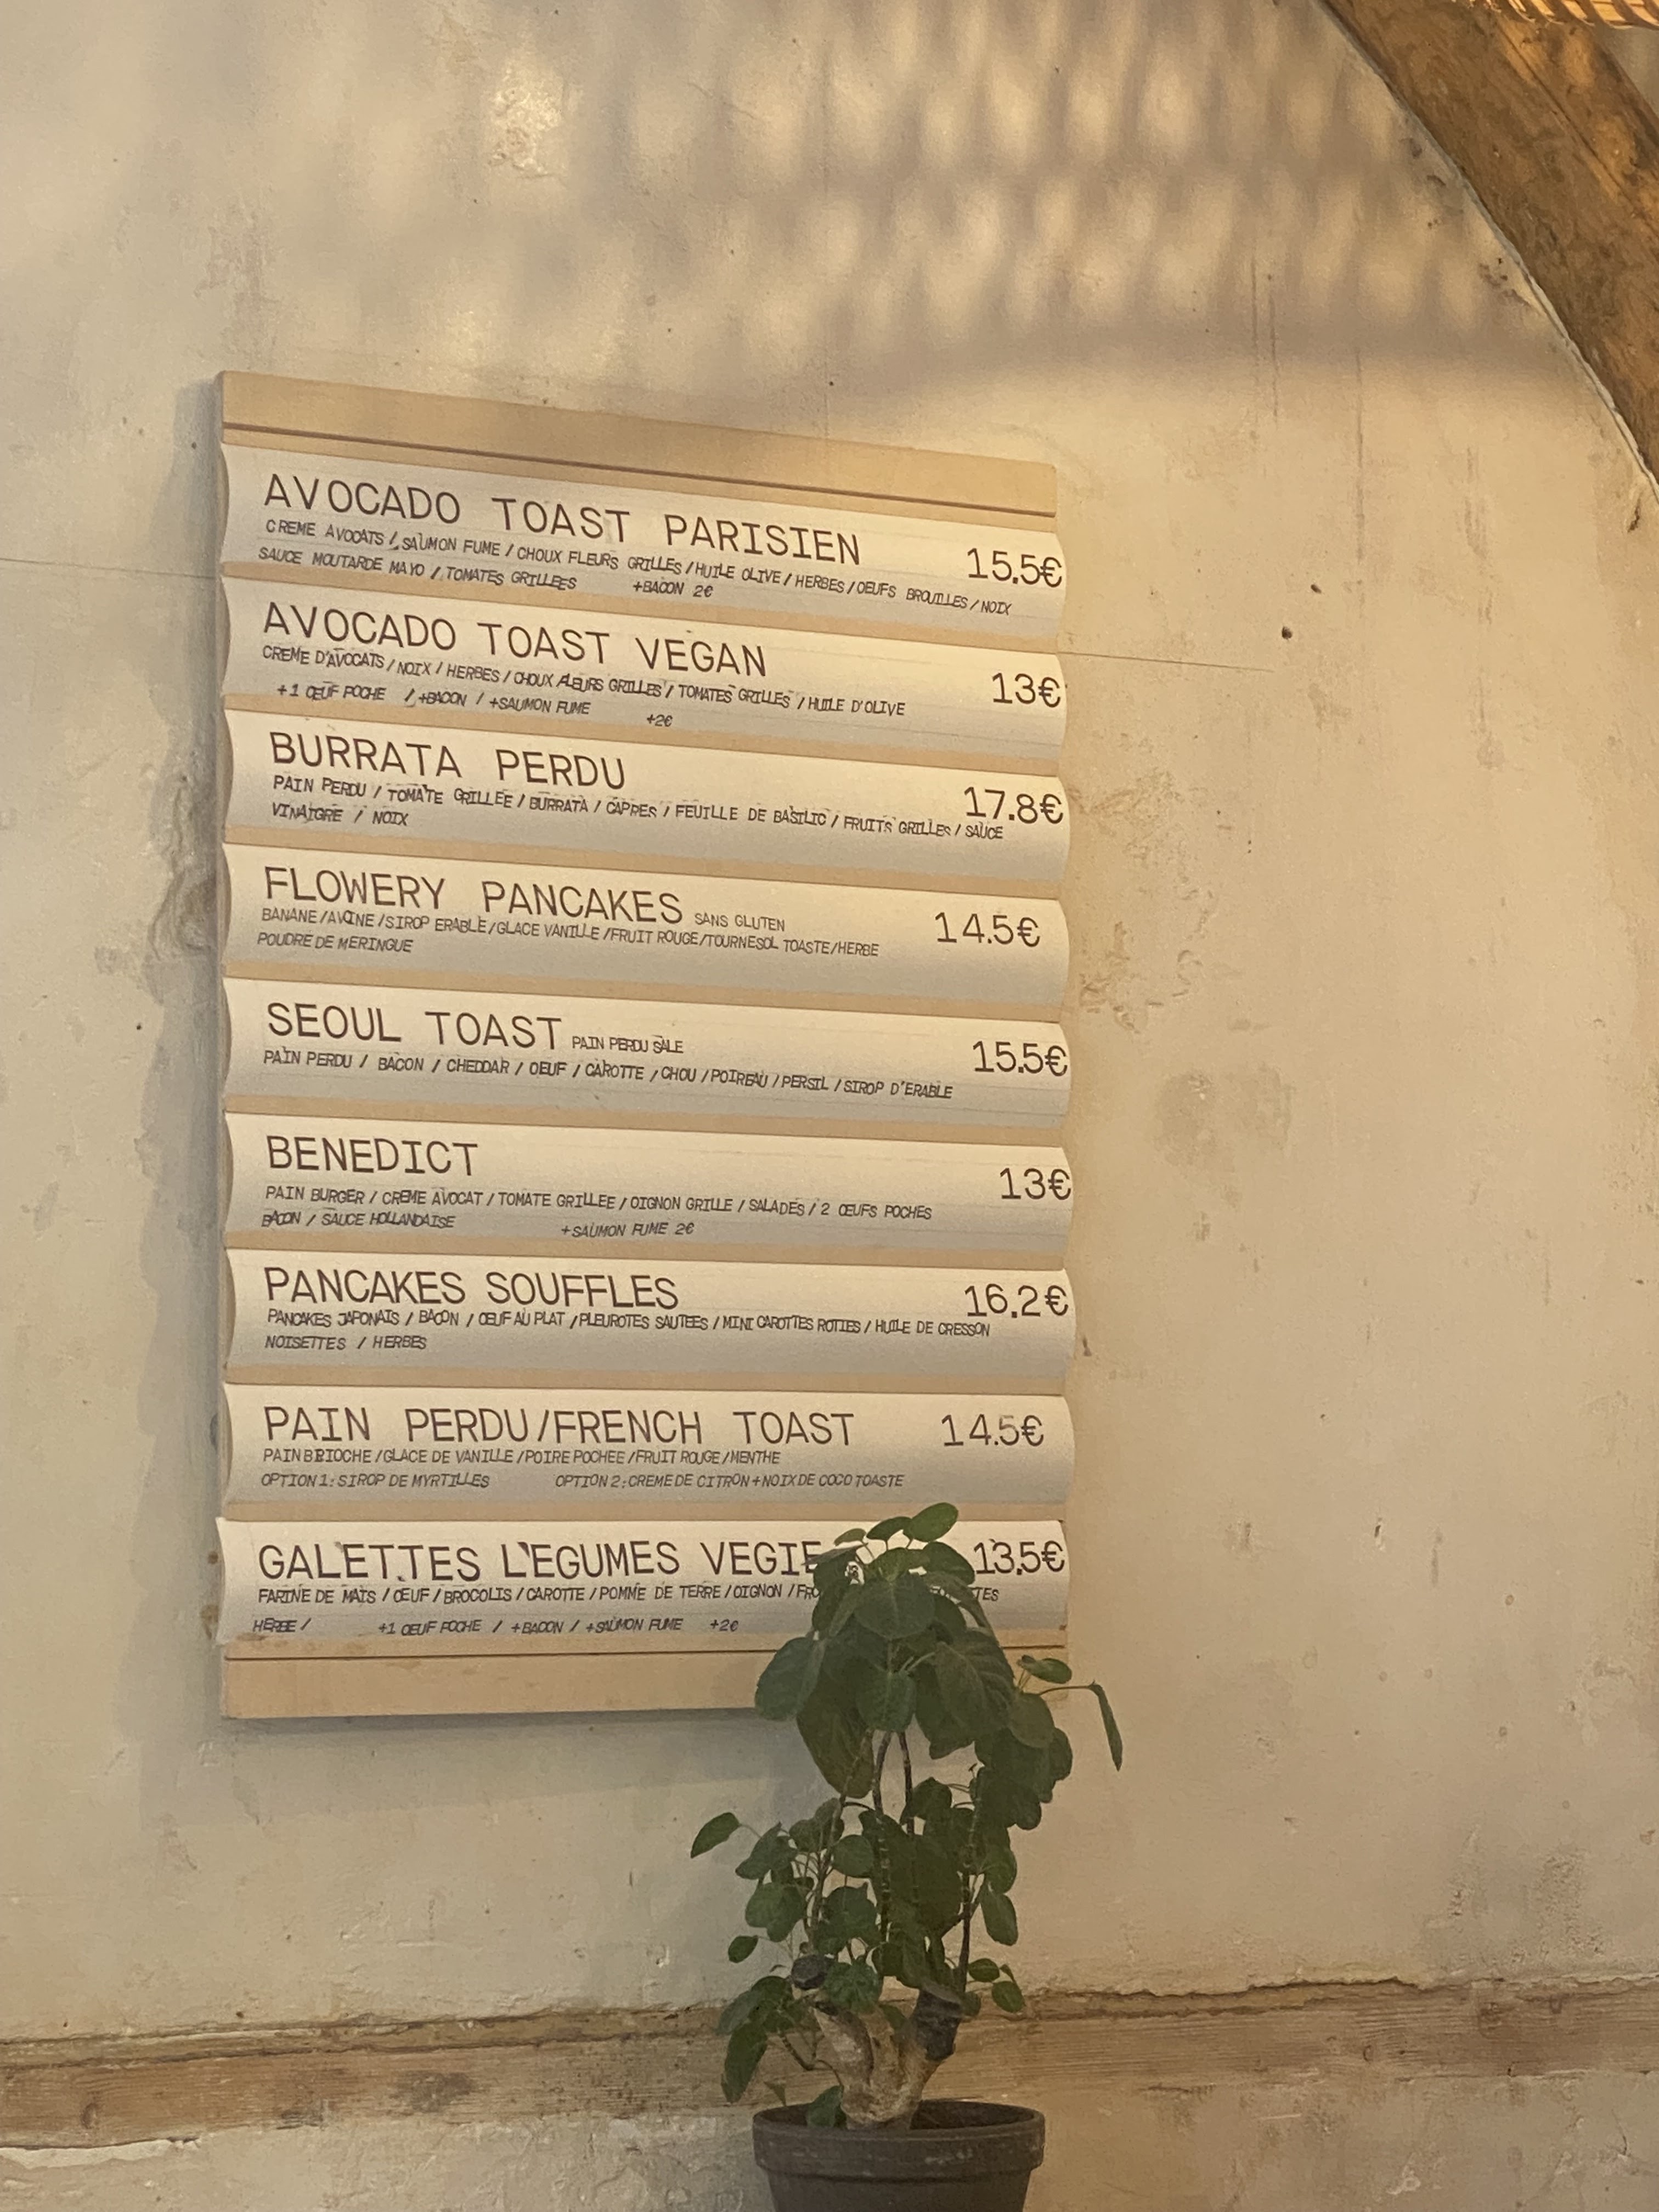 AVOCADO TOAST PARISIEN 15.5€
CREME AVOCATS / SAUMON FUME / CHOUX FLEURS GRILLES / HUILE OLIVE / HERBES / OEUFS BROUILLES / NOIX
SAUCE MOUTARDE MAYO / TOMATES GRILLEES +BACON 2€
AVOCADO TOAST VEGAN 13€
CREME D'AVOCATS / NOIX / HERBES / CHOUX FLEURS GRILLES / TOMATES GRILLES / HUILE D'OLIVE
+1 ŒUF POCHE / +BACON / +SAUMON FUME +2€
BURRATA PERDU 17.8€
PAIN PERDU / TOMATE GRILLEE / BURRATA / CAPRES / FEUILLE DE BASILIC / FRUITS GRILLES / SAUCE
VINAIGRE / NOIX
FLOWERY PANCAKES SANS GLUTEN 14.5€
BANANE / AVOINE / SIROP ERABLE / GLACE VANILLE / FRUIT ROUGE / TOURNESOL TOASTE / HERBE
POUDRE DE MERINGUE
SEOUL TOAST PAIN PERDU SALE 15.5€
PAIN PERDU / BACON / CHEDDAR / OEUF / CAROTTE / CHOU / POIREAU / PERSIL / SIROP D'ERABLE
BENEDICT 13€
PAIN BURGER / CREME AVOCAT / TOMATE GRILLEE / OIGNON GRILLE / SALADES / 2 ŒUFS POCHES
BACON / SAUCE HOLLANDAISE +SAUMON FUME 2€
PANCAKES SOUFFLES 16.2€
PANCAKES JAPONAIS / BACON / ŒUF AU PLAT / PLEUROTES SAUTEES / MINI CAROTTES ROTIES / HUILE DE CRESSON
NOISETTES / HERBES
PAIN PERDU/FRENCH TOAST 14.5€
PAIN BRIOCHE / GLACE DE VANILLE / POIRE POCHEE / FRUIT ROUGE / MENTHE
OPTION 1: SIROP DE MYRTILLES OPTION 2: CREME DE CITRON + NOIX DE COCO TOASTE
GALETTES L'EGUMES VEGIE 13.5€
FARINE DE MAIS / ŒUF / BROCOLIS / CAROTTE / POMME DE TERRE / OIGNON /
HERBE / +1 OEUF POCHE / +BACON / +SAUMON FUME +2€